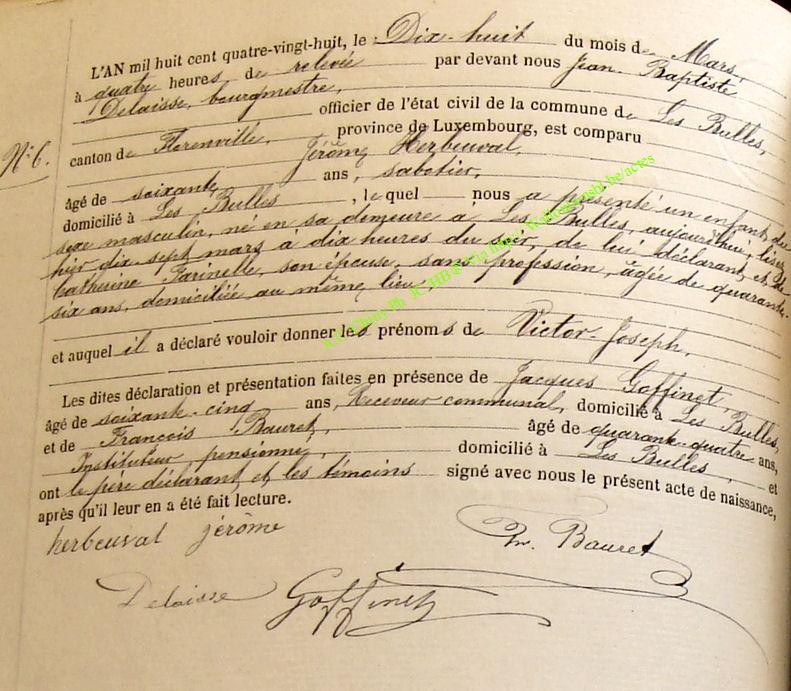 L'AN mil huit cent quatre-vingt-huit, le Dix-huit du mois de Mars,
à quatre heures de relevée par devant nous Jean Baptiste
Delaisse, bourgmestre,
officier de l'état civil de la commune de Les Bulles,
N° 6.
canton de Florenville, province de Luxembourg, est comparu
Jérôme Herbeuval,
âgé de soixante ans, sabotier,
domicilié à Les Bulles, lequel nous a présenté un enfant du
sexe masculin, né en sa demeure à Les Bulles, aujourd'hui,
hier dix-sept mars à dix heures du soir, de lui déclarant et de
Catherine Parinelle, son épouse, sans profession, âgée de quarante-
six ans, domiciliée au même lieu
et auquel il a déclaré vouloir donner les prénoms de Victor-Joseph.
Les dites déclaration et présentation faites en présence de Jacques Goffinet,
âgé de soixante-cinq ans, Receveur communal, domicilié à Les Bulles,
et de François Bauret, âgé de quarante-quatre ans,
Instituteur pensionné, domicilié à Les Bulles, et
ont le père déclarant et les témoins signé avec nous le présent acte de naissance,
après qu'il leur en a été fait lecture.
herbeuval jérôme
Fr. Bauret
Delaisse Goffinet